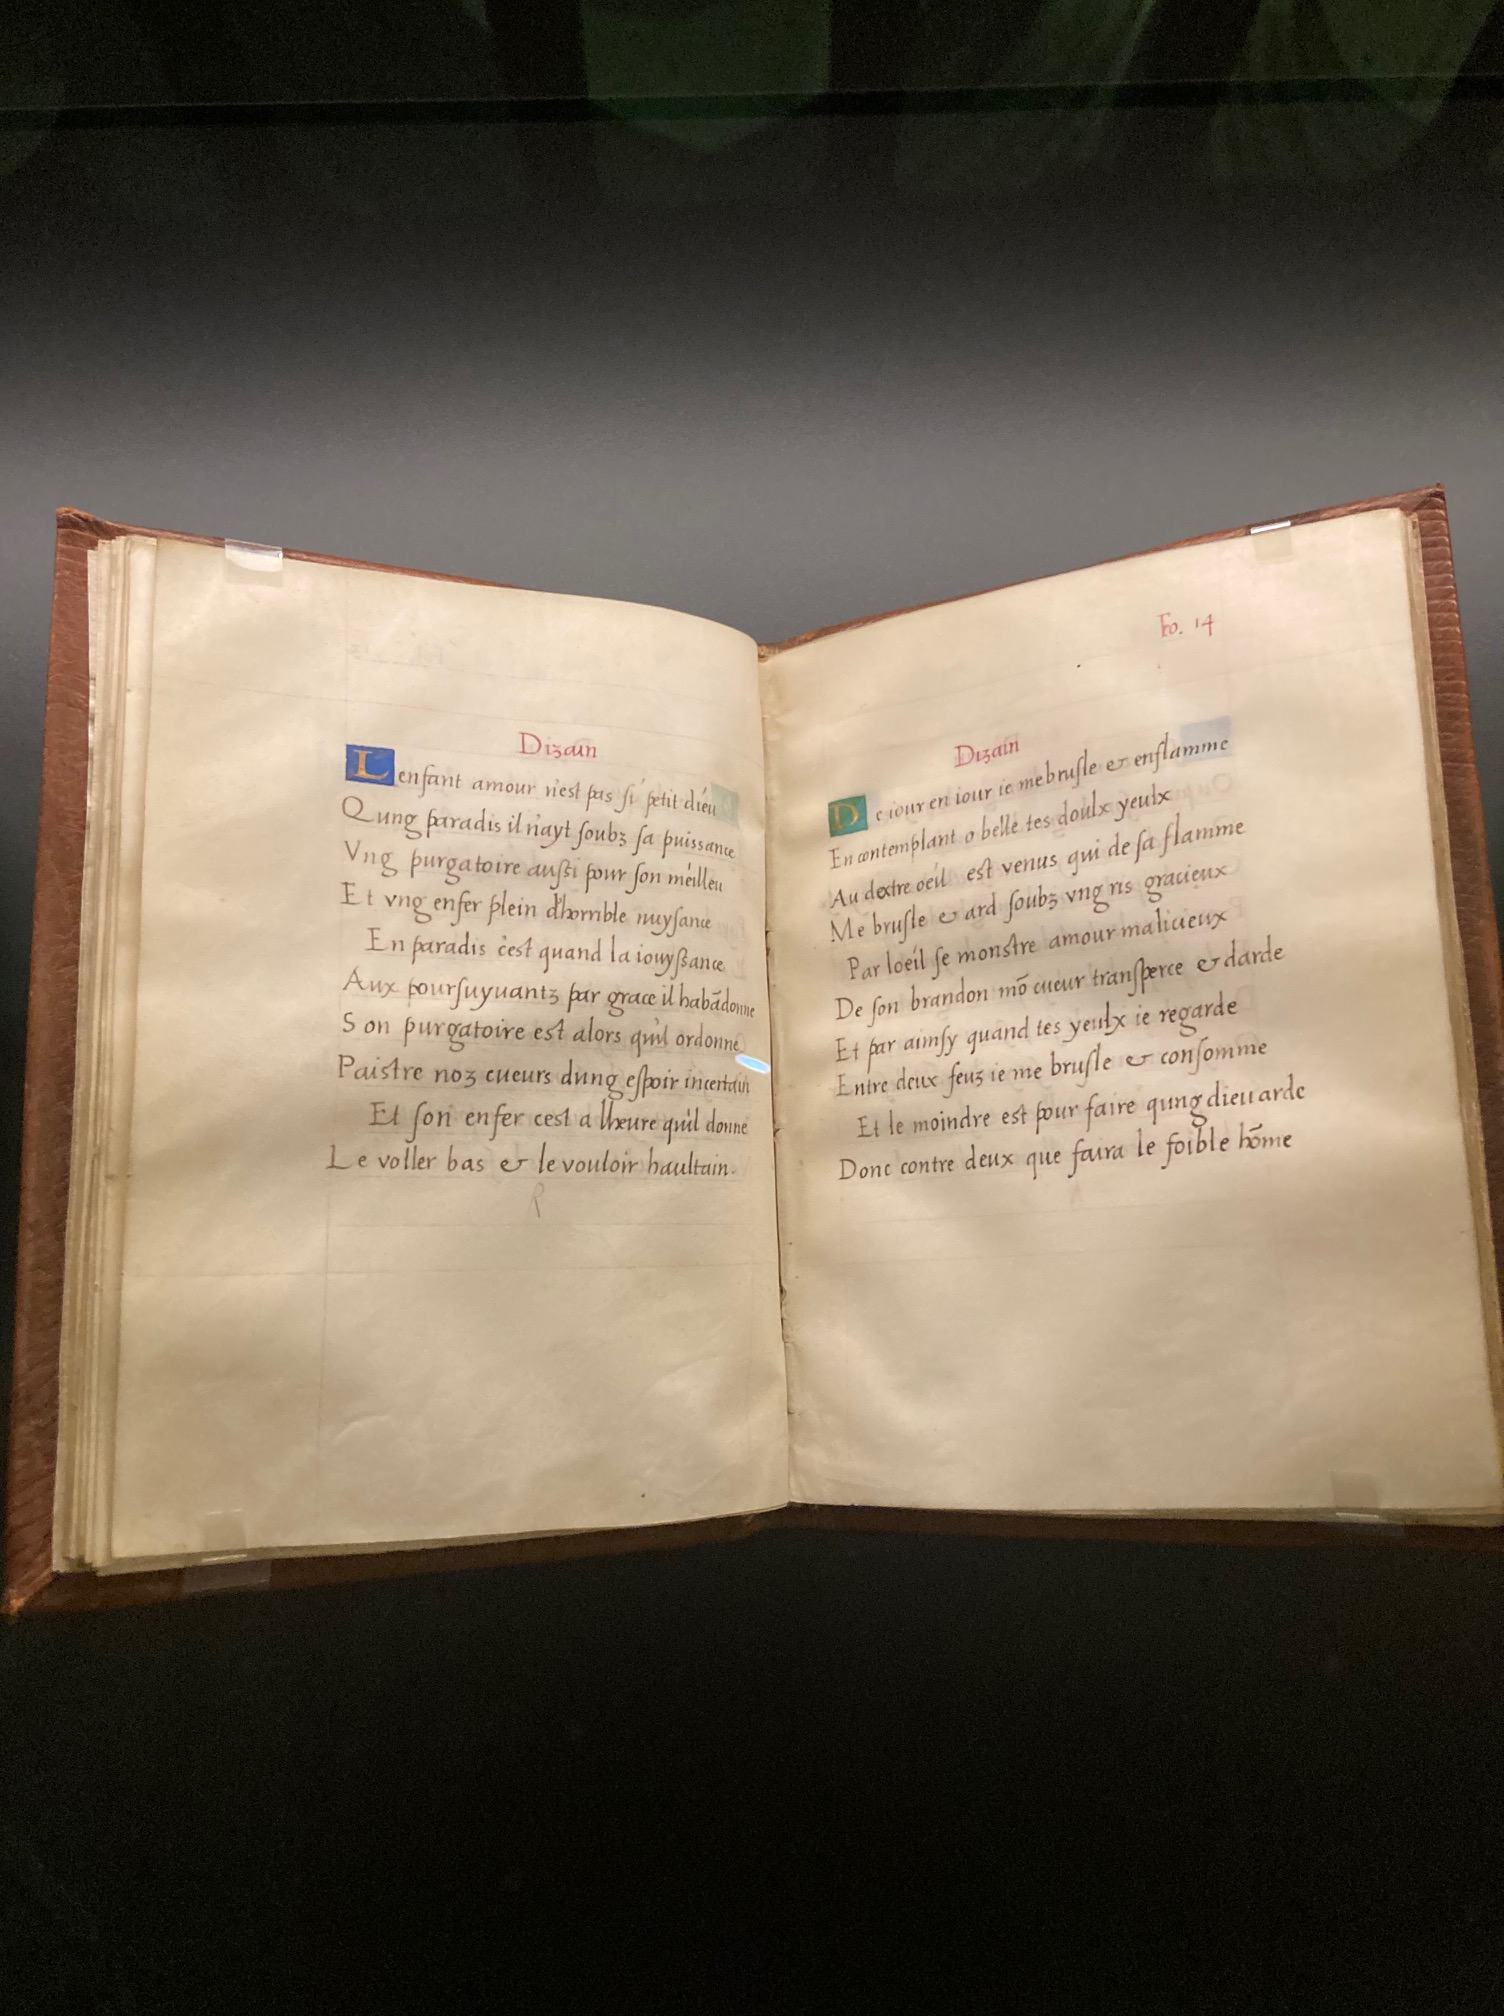 Dizain
Lenfant amour n'est pas si petit dieu
Qung paradis il n'ayt soubz sa puissance
Vng purgatoire aussi pour son meilleu
Et vng enfer plein dhorrible nuysance
En paradis c'est quand la iouyssance
Aux poursuyuantz par grace il habādonne
Son purgatoire est alors qu'il ordonne
Paistre noz cueurs dung espoir incertain
Et son enfer cest a lheure qu'il donne
Le voller bas & le vouloir haultain.
R
Fo. 14
Dizain
De iour en iour ie me brusle & enflamme
En contemplant o belle tes doulx yeulx
Au dextre oeil est venus qui de sa flamme
Me brusle & ard soubz vng ris gracieux
Par loeil se monstre amour malicieux
De son brandon mō cueur transperce & darde
Et par ainsy quand tes yeulx ie regarde
Entre deux feuz ie me brusle & consomme
Et le moindre est pour faire qung dieu arde
Donc contre deux que faira le foible hōme